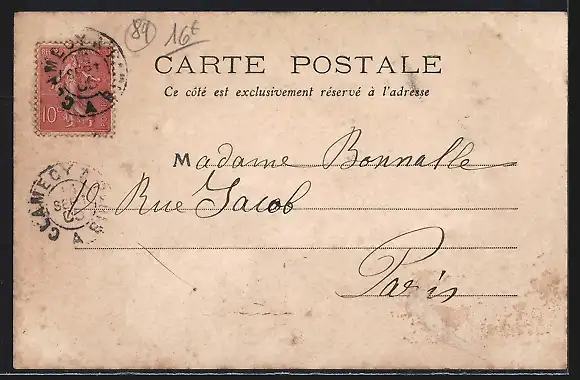 (89) 16€
CARTE POSTALE
Ce côté est exclusivement réservé à l'adresse
10
CLAMECY
Madame Bonnalle
CLAMECY
19 Rue Jacob
Paris